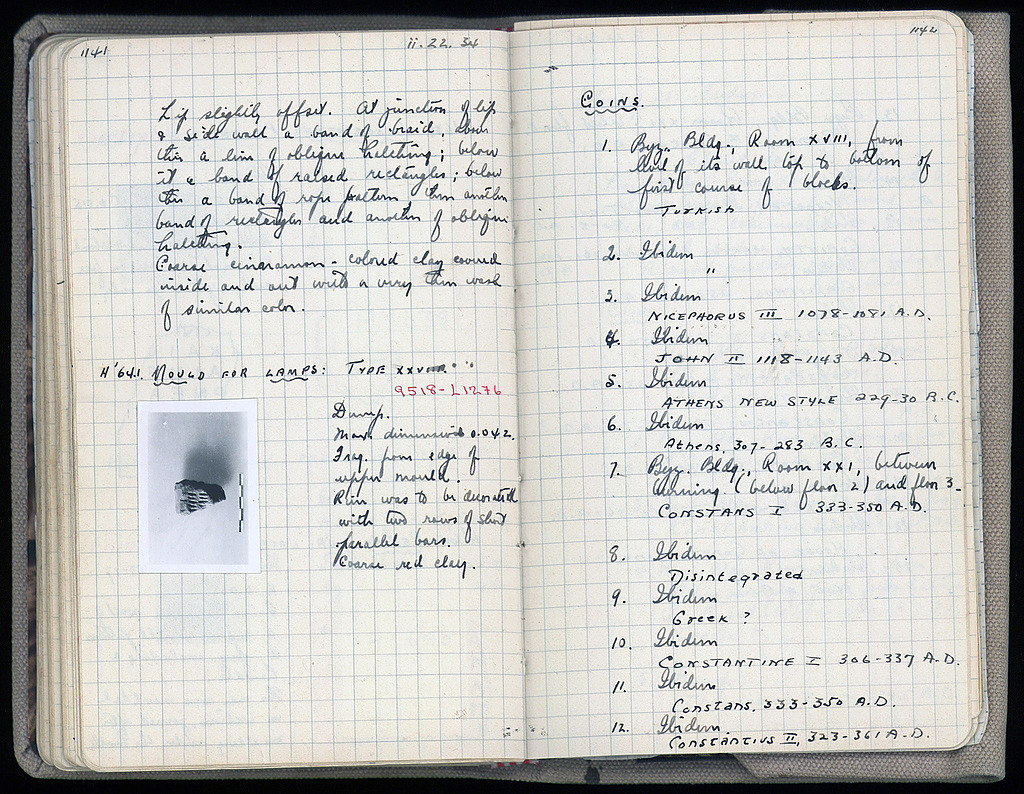 1141
ii. 22. 34
Lip slightly offset. At junction of lip
& side wall a band of braid, above
this a line of oblique hatching; below
it a band of raised rectangles; below
this a band of rope pattern, then another
band of rectangles and another of oblique
hatching.
Coarse cinnamon-colored clay covered
inside and out with a very thin wash
of similar color.
H'641. MOULD FOR LAMPS: TYPE XXVIII
9518-L1276
Dump.
Max. dimension 0.042.
Frag. from edge of
upper mould.
Rim was to be decorated
with two rows of short
parallel bars.
Coarse red clay.
1142
COINS.
1. Byz. Bldg., Room XVIII, from
level of its wall top to bottom of
first course of blocks.
Turkish
2. Ibidem
"
3. Ibidem
NICEPHORUS III 1078-1081 A.D.
4. Ibidem
JOHN II 1118-1143 A.D.
5. Ibidem
ATHENS NEW STYLE 229-30 B.C.
6. Ibidem
Athens, 307-283 B.C.
7. Byz. Bldg., Room XXI, between
burning (below floor 2) and floor 3-
CONSTANS I 333-350 A.D.
8. Ibidem
Disintegrated
9. Ibidem
Greek ?
10. Ibidem
CONSTANTINE I 306-337 A.D.
11. Ibidem
Constans, 333-350 A.D.
12. Ibidem.
Constantius II, 323-361 A.D.